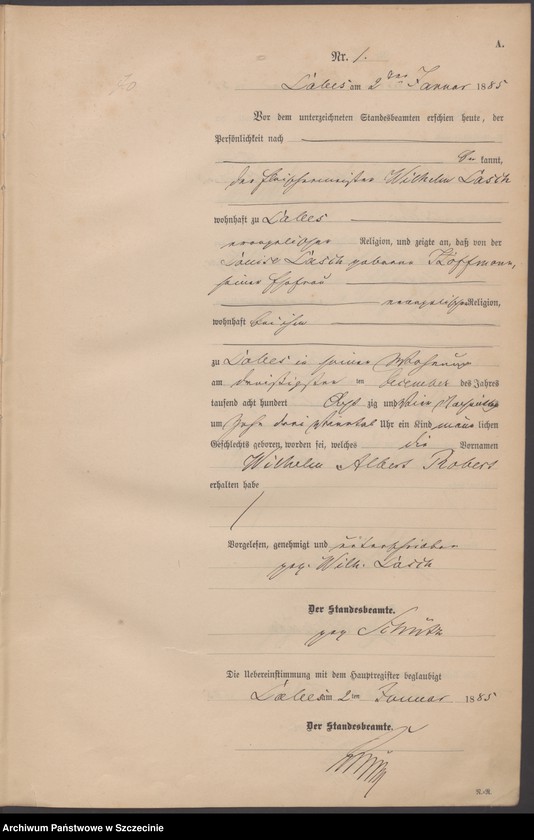 A.
Nr. 1.
Labes am 2ten Januar 1885
Vor dem unterzeichneten Standesbeamten erschien heute, der
Persönlichkeit nach
be kannt,
der Fleischermeister Wilhelm Lasch
wohnhaft zu Labes
evangelischer Religion, und zeigte an, daß von der
Louise Lasch geborene Koffmann,
seiner Ehefrau
evangelischer Religion,
wohnhaft bei ihm
zu Labes in seiner Wohnung
am dreißigsten ten Dezember des Jahres
tausend acht hundert acht zig und vier Nachmittags
um zehn drei viertel Uhr ein Kind männ lichen
Geschlechts geboren, worden sei, welches die Vornamen
Wilhelm Albert Robert
erhalten habe
Vorgelesen, genehmigt und unterschrieben
gez. Wilh. Lasch
Der Standesbeamte.
gez Schütz
Die Uebereinstimmung mit dem Hauptregister beglaubigt
Labes am 2 ten Januar 1885
Der Standesbeamte.
Archiwum Państwowe w Szczecinie